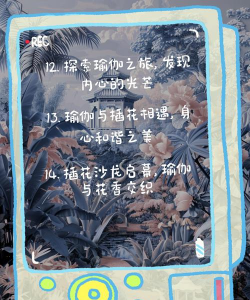 REC
12. 探索瑜伽之旅, 发现
内心的光芒
13. 瑜伽与插花相遇, 身
心和谐之美
14. 插花沙龙启幕, 瑜伽
与花香交织